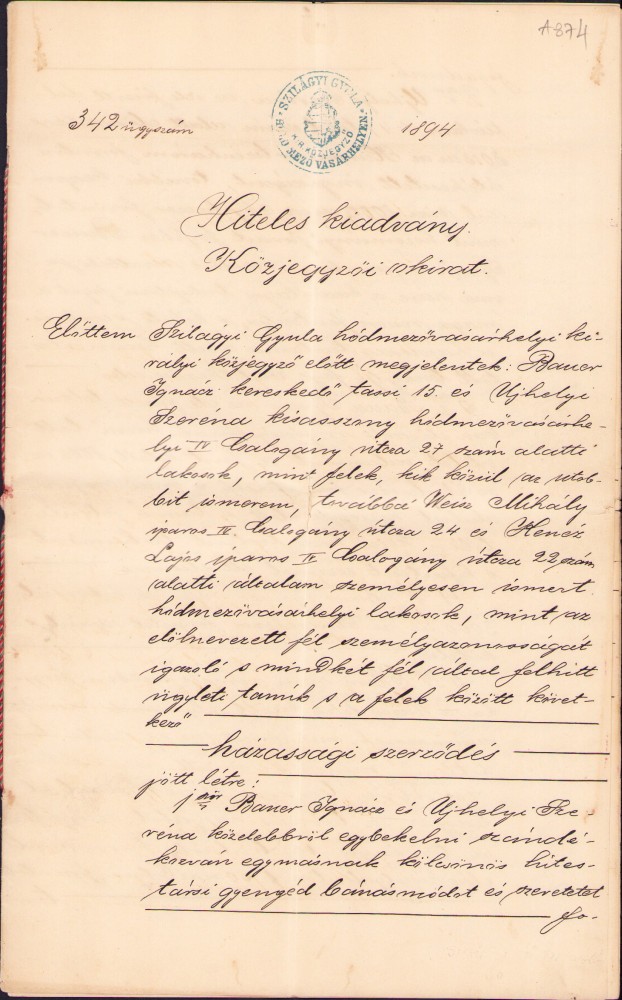 A 874
SZILÁGYI GYULA
KIR. KÖZJEGYZŐ
HÓDMEZŐVÁSÁRHELYEN
342 ügyszám
1894
Hiteles kiadvány.
Közjegyzői okirat.
Előttem Szilágyi Gyula hódmezővásárhelyi ki-
rályi közjegyző előtt megjelentek: Bauer
Ignácz kereskedő tassi 15. és Ujhelyi
Szeréna kisasszony hódmezővásárhe-
lyi IV Csalogány útcza 27 szám alatti
lakosok, mint felek, kik közül az utob-
bit ismerem, továbbá Weisz Mihály
iparos IV. Csalogány útcza 24 és Kenéz
Lajos iparos IV Csalogány útcza 22 szám
alatti általam személyesen ismert
hódmezővásárhelyi lakosok, mint az
elölnevezett fél személyazonosságát
igazoló s mindkét fél által felhitt
ügyleti tanúk s a felek között követ-
kező
házassági szerződés
jött létre:
1 ször Bauer Ignácz és Ujhelyi Sze-
réna közelebbről egybekelni szándé-
kozván egymásnak kölcsönös hites-
társi gyengéd bánásmódot és szeretetet
fo-